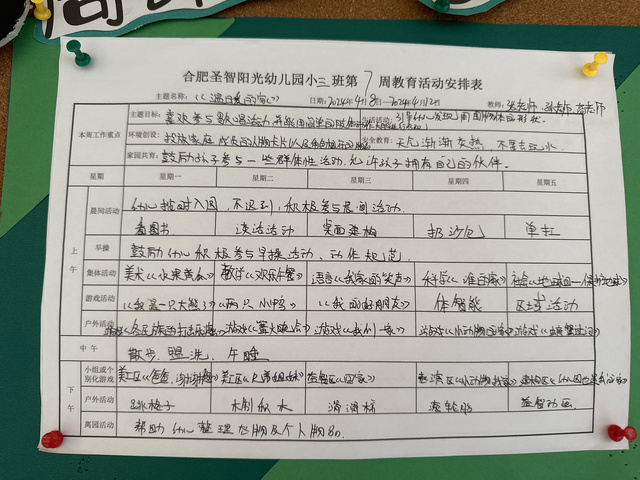 合肥圣智阳光幼儿园小三班第7周教育活动安排表
主题名称:《温暖的家》 日期:2024年4月8日-2024年4月12日 教师:
本周工作重点
主题目标:喜欢参与歌唱活动,并能用简单的肢体动作
生活活动:引导幼儿发现周围物体的形状。
环境创设:投放家庭成员的人物卡片以及
安全教育:天气渐渐炎热,不要去玩水
家园共育:鼓励孩子参与一些群体性活动,允许孩子拥有自己的伙伴。
星期 星期一 星期二 星期三 星期四 星期五
上午
晨间活动 幼儿按时入园,不迟到,积极参与晨间活动。
看图书 谈话活动 桌面建构 扔沙包 单杠
早操 鼓励幼儿积极参与早操活动,动作规范
集体活动 美术《水果黄瓜》 数学《欢乐午餐》 语言《我家的笑声》 科学《谁的家》 社会
游戏活动 《我是一只大熊》 《两只小鸭》 《我的好朋友》 体智能 区域活动
户外活动 游戏《萤火晚点》 游戏《我们一家》 游戏《小动物回家》 游戏
中午 散步、盥洗、午睡
下午
小组或个别化游戏 美工区《爸爸,谢谢》 美工区 益智区《回家》 表演区《小动物找家》 建构区
户外活动 跳格子 木制积木 滑滑梯 滚轮胎 益智功区
离园活动 帮助幼儿整理衣物及个人物品。